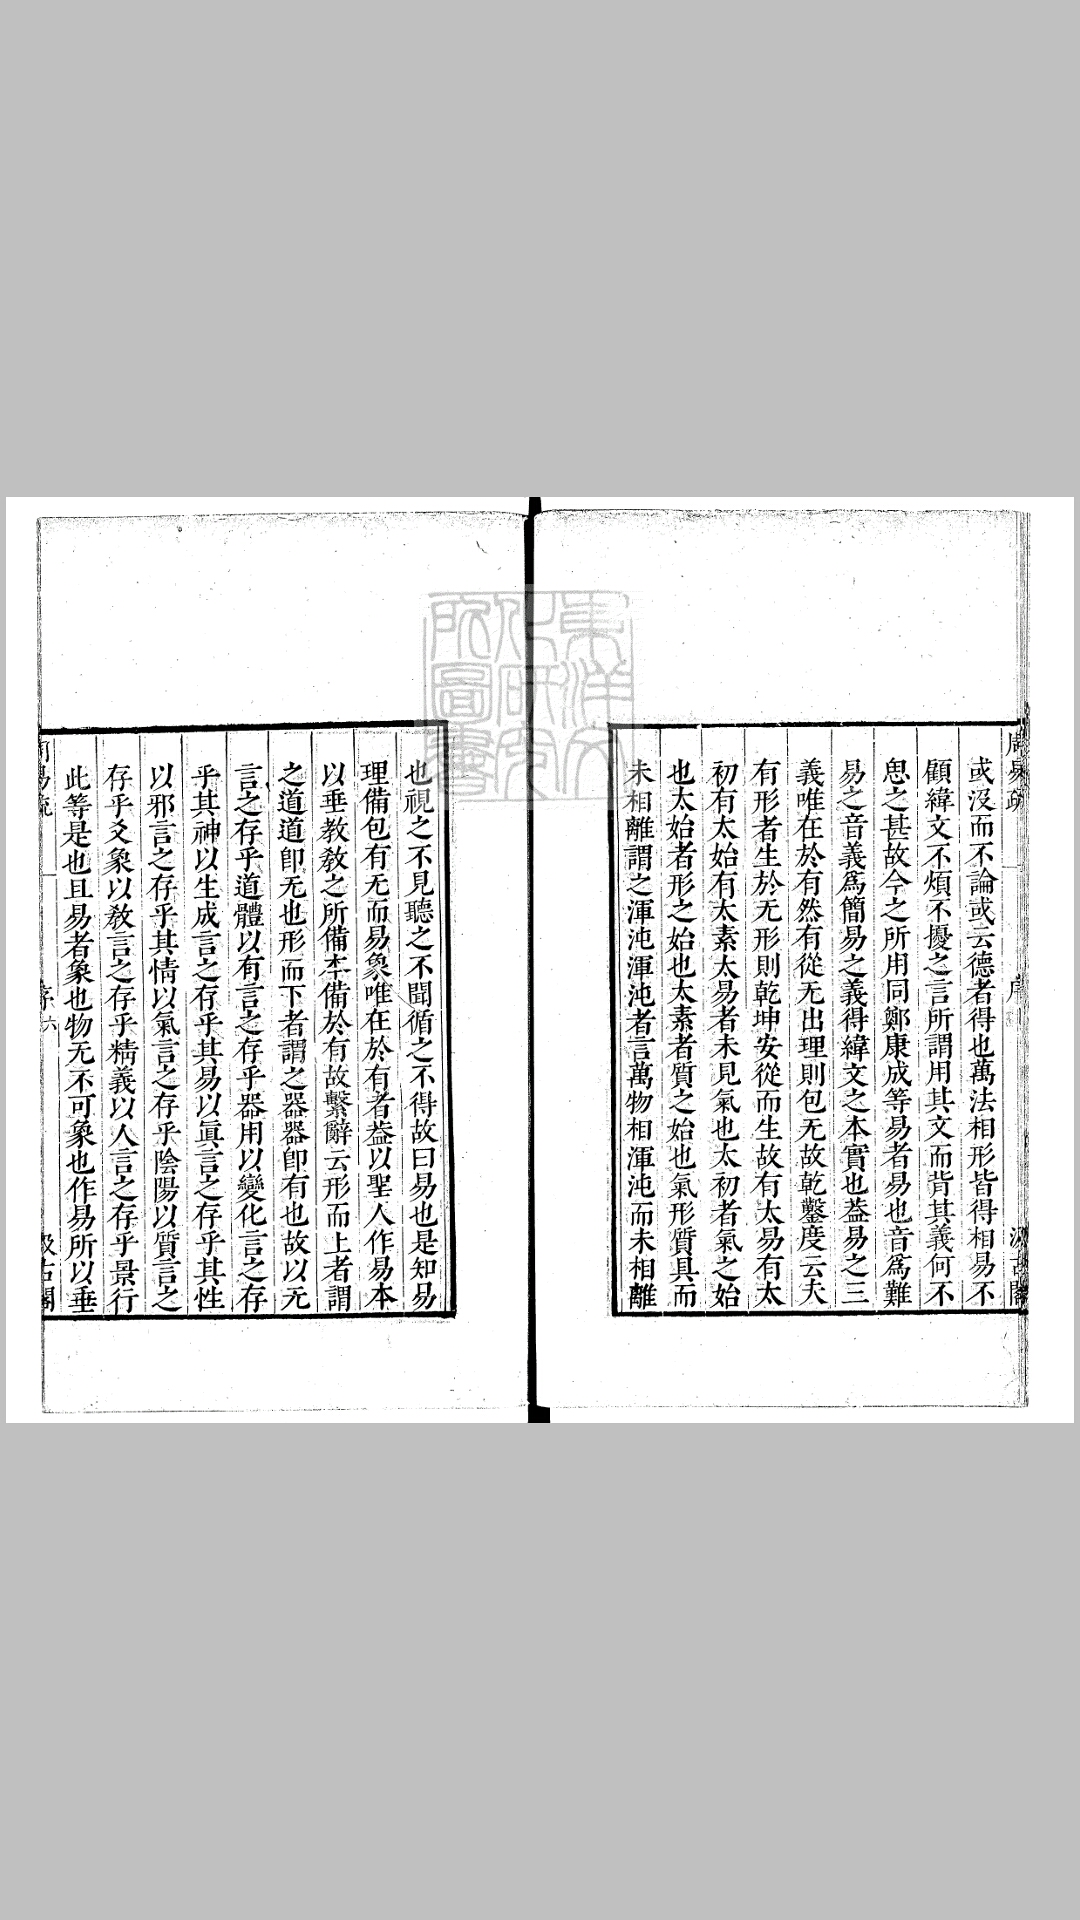 周易疏
序
汲古閣
或沒而不論或云德者得也萬法相形皆得相易不
顧緯文不煩不擾之言所謂用其文而背其義何不
思之甚故今之所用同鄭康成等易者易也音爲難
易之音義爲簡易之義得緯文之本實也葢易之三
義唯在於有然有從无出理則包无故乾鑿度云夫
有形者生於无形則乾坤安從而生故有太易有太
初有太始有太素太易者未見氣也太初者氣之始
也太始者形之始也太素者質之始也氣形質具而
未相離謂之渾沌渾沌者言萬物相渾沌而未相離
也視之不見聽之不聞循之不得故曰易也是知易
理備包有无而易象唯在於有者葢以聖人作易本
以垂教教之所備本備於有故繫辭云形而上者謂
之道道卽无也形而下者謂之器器卽有也故以无
言之存乎道體以有言之存乎器用以變化言之存
乎其神以生成言之存乎其易以眞言之存乎其性
以邪言之存乎其情以氣言之存乎陰陽以質言之
存乎爻象以教言之存乎精義以人言之存乎景行
此等是也且易者象也物无不可象也作易所以垂
周易疏
序
六
汲古閣
東洋文
化研究
所圖書